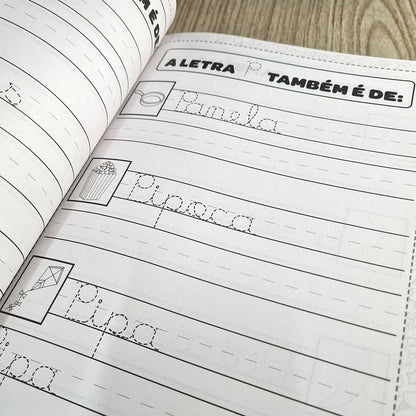 A LETRA P TAMBÉM É DE:
Panela
Pipoca
Pipa
ipa